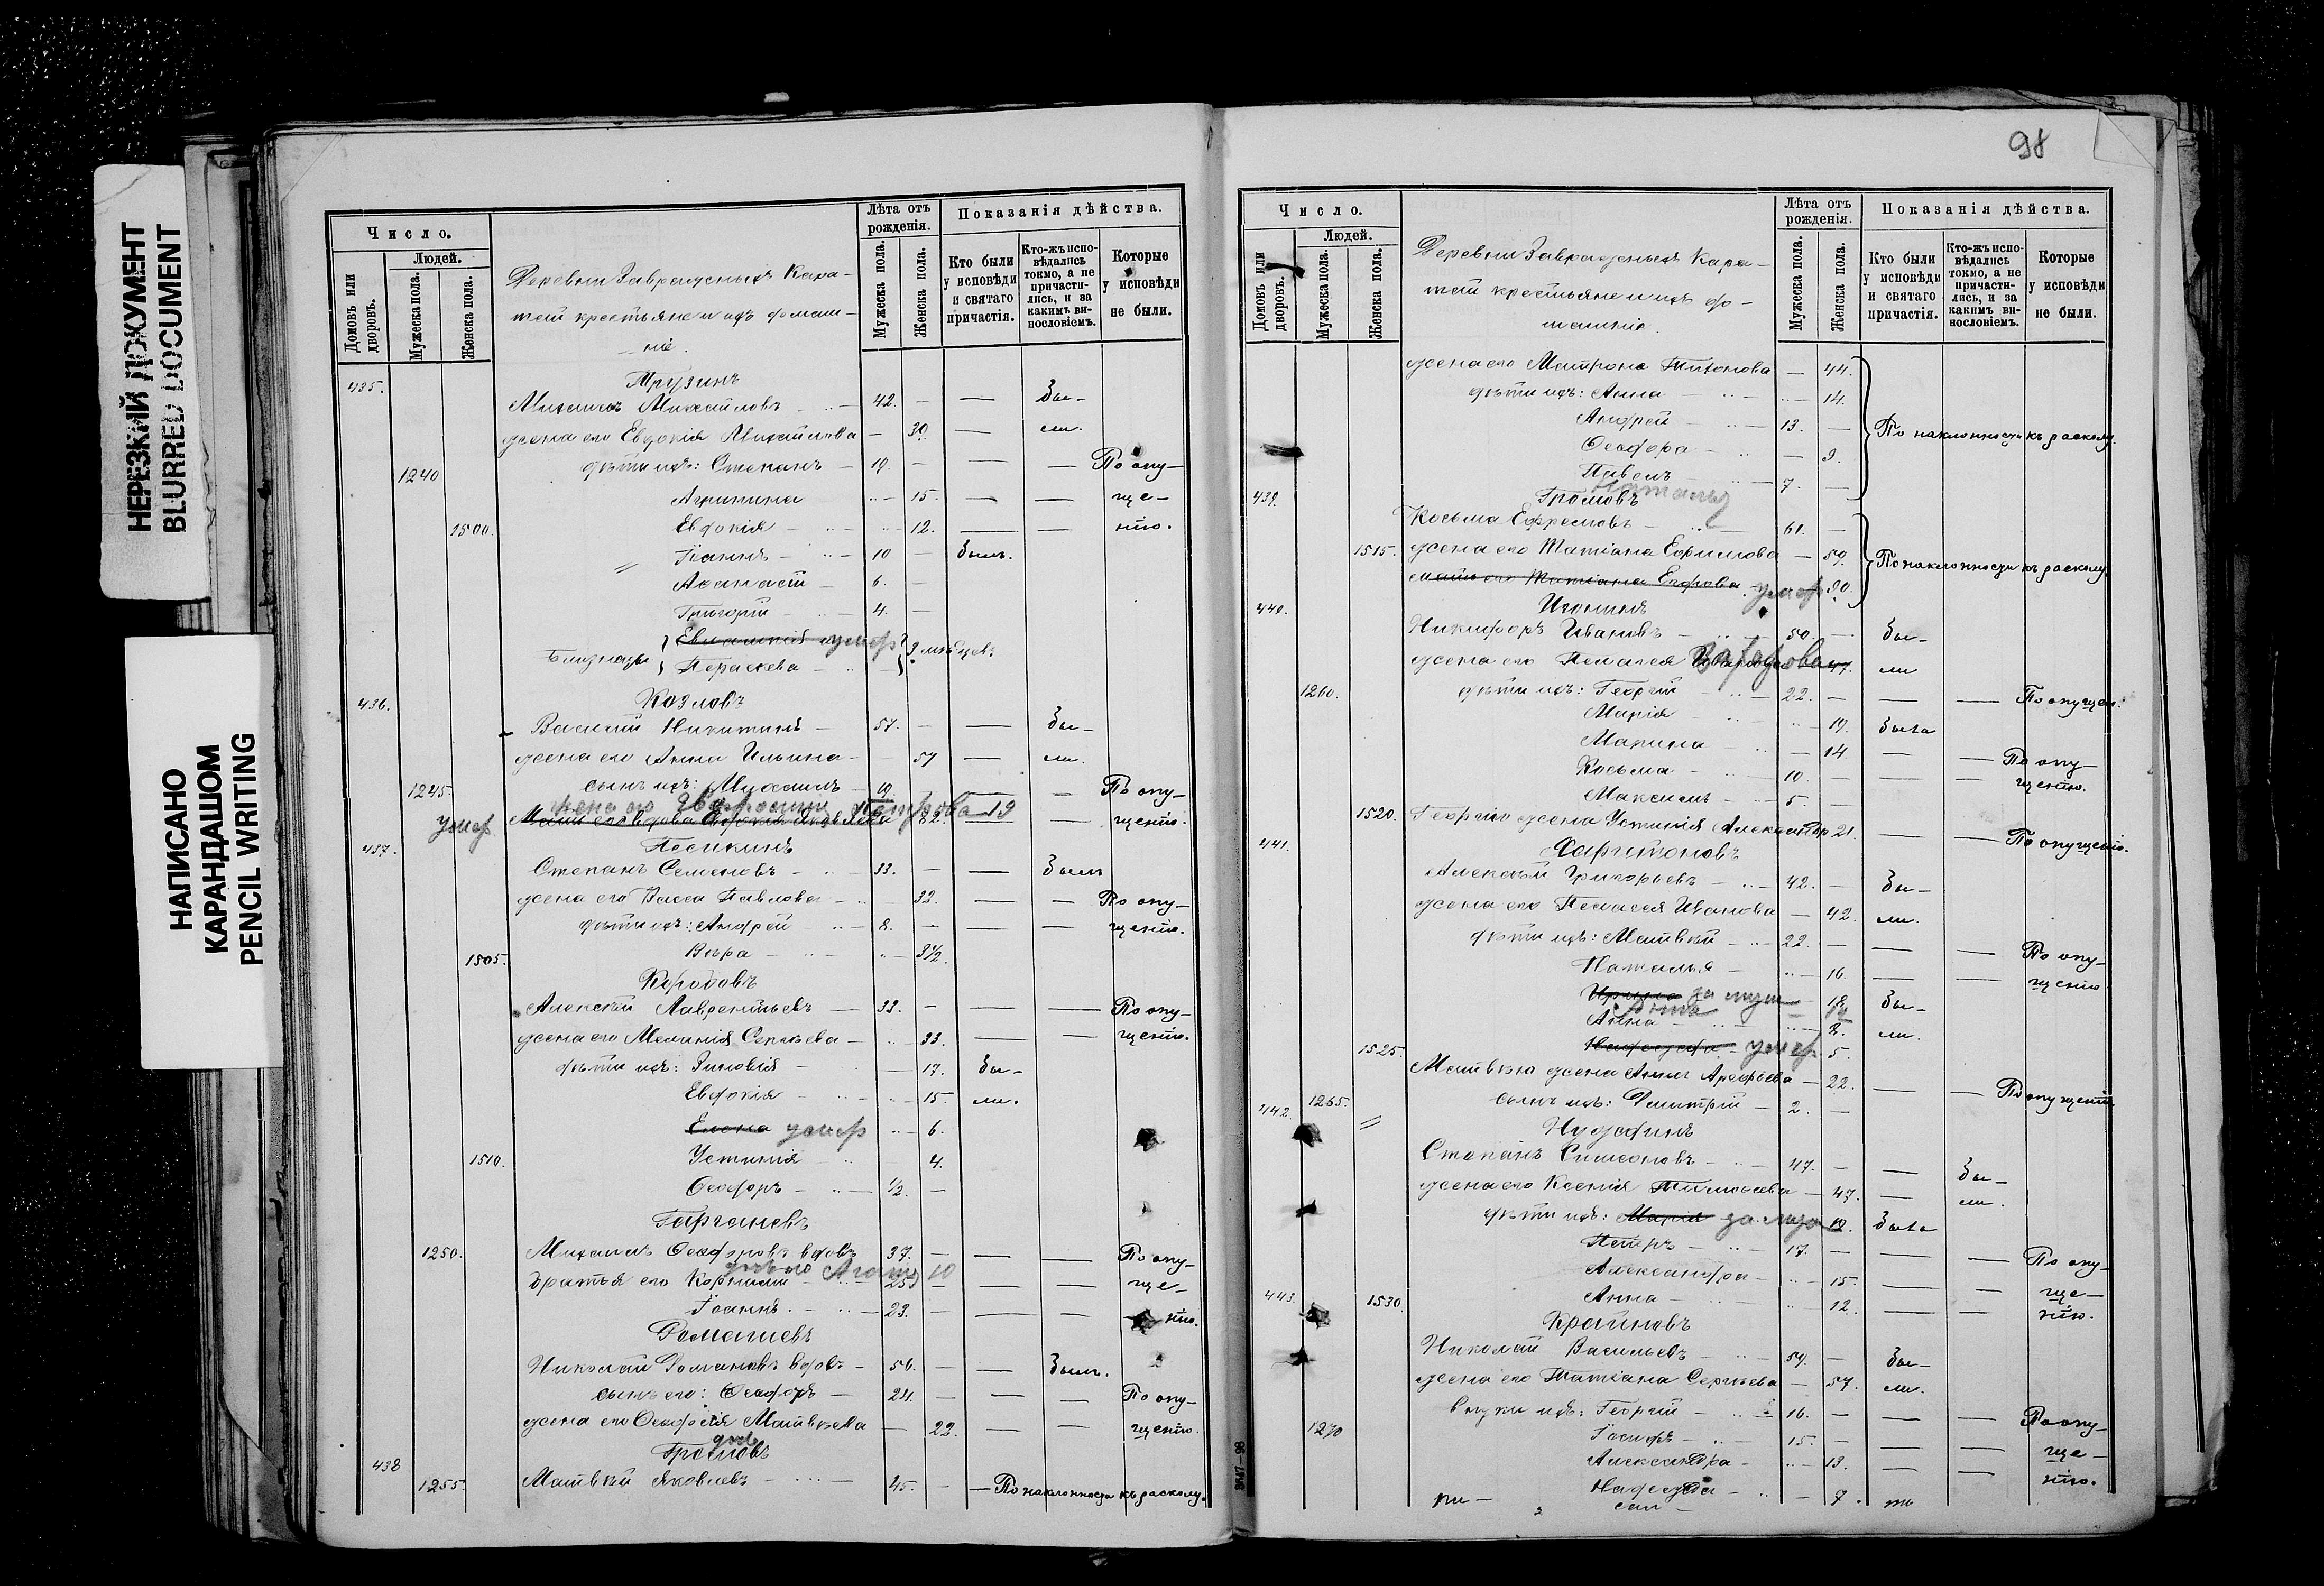 НЕРЕЗКИЙ ДОКУМЕНТ
BLURRED DOCUMENT
НАПИСАНО
КАРАНДАШОМ
PENCIL WRITING
Число.
Людей.
Домовъ или дворовъ.
Мужеска пола.
Женска пола.
Деревни Завражныхъ Кара-
тай крестьяне и ихъ домаш-
ніе.
Лѣта отъ рожденія.
Мужеска пола.
Женска пола.
Показанія дѣйства.
Кто были у исповѣди и святаго причастія.
Кто-жъ испо-вѣдались токмо, а не причасти-лись, и за какимъ ви-нословіемъ.
Которые у исповѣди не были.
435.
Михаилъ Михайловъ 42. — — бы-
жена его Евдокія Михайлова — 39. — ли.
1240 дѣти ихъ: Степанъ — 19. — — — По опу-
Агрипина — 15. — — ще-
1500. Евдокія — 12. — — нію.
Іоаннъ — 10 — былъ.
Аѳанасій — 6. —
Григорій — 4. —
умер
близнецы Параскева 3 мѣсяцевъ
436. Козловъ
Василій Никитинъ — 57. — — бы-
жена его Анна Ильина — 57 — ли.
1245. сынъ ихъ: Михаилъ — 19. — — — По опу-
жена его Петрова 19
умер 82. — — щенію.
437. Песикинъ
Степанъ Семеновъ — 33. — — былъ
жена его Васса Павлова — 32. — — По опу-
дѣти ихъ: Андрей — 8. — — — щенію.
1505. Вѣра — 3½.
Алексѣй Лаврентьевъ — 33. — — — По опу-
жена его Меланія Сергѣева — 33. — — щенію.
дѣти ихъ: Зиновія — 17. бы-
Евдокія — 15. ли.
Елена умер — 6.
1510. Устинія — 4.
Ѳеодоръ — ½. —
1250. Михаилъ Ѳеодоровъ вдовъ 37. — — — По опу-
дочь его 10
братья его Корнилій — 25 — — — ще-
Іоаннъ — 23. — — — нію.
Николай Романовъ вдовъ — 56. — — былъ.
сынъ его: Ѳеодоръ — 24. — — — По опу-
жена его Матвѣева — 22. — — щенію.
438 Громовъ
1255. Матвѣй Яковлевъ — 45. — — По наклонности къ расколу.
98
Число.
Людей.
Домовъ или дворовъ.
Мужеска пола.
Женска пола.
Деревни Завражныхъ Кара-
тай крестьяне и ихъ до-
машніе.
Лѣта отъ рожденія.
Мужеска пола.
Женска пола.
Показанія дѣйства.
Кто были у исповѣди и святаго причастія.
Кто-жъ испо-вѣдались токмо, а не причасти-лись, и за какимъ ви-нословіемъ.
Которые у исповѣди не были.
жена его Матрона Тихонова — 44.
дѣти ихъ: Анна — 14.
Андрей — 13. — По наклонности къ расколу.
Ѳеодора — 9.
Павелъ — 7. —
439. Громовъ
Косьма Ефремовъ — 61. —
1515. жена его Татіана Ефимова — 59. По наклонности къ расколу.
мать его Татіана Егорова умер 80.
440.
Никифоръ Ивановъ — 50. — бы-
жена его Пелагея 47. ли
1260. дѣти ихъ: Георгій — 22. — — — По опущен.
Марія — 19. была
Марина — 14 — — По опу-
Косьма — 10. — — — щенію.
Максимъ — 5. —
1520. Георгія жена Устинія Александр. 21. — — По опущенію.
441. Харитоновъ
Алексѣй Григорьевъ — 42. — бы-
жена его Пелагея Иванова — 42. ли.
дѣти ихъ: Матвѣй — 22. — — — По опу-
Наталья — 16. — — щенію
Ирина за муж — 18 бы-
Анна — 8. ли.
1525. Надежда — умер 5.
Матвѣя жена Анна Арефьева — 22. — — По опущенію
1265. сынъ ихъ: Димитрій — 2. —
442.
Степанъ Симеоновъ — 47. — — бы-
жена его Ксенія Тимофеева — 47. — ли.
дѣти ихъ: Марія за муж 19. была
Петръ — 17. — — — По опу-
Александра — 15. — — ще-
443. 1530. Анна — 12. — — нію.
Крайновъ
Николай Васильевъ — 59. — бы-
жена его Татіана Сергѣева — 57. ли.
внуки ихъ: Георгій — 16. — — — По опу-
1270 Іосифъ — 15. — — — ще-
Александра — 13. — — нію.
Надежда — 7.
8647—98